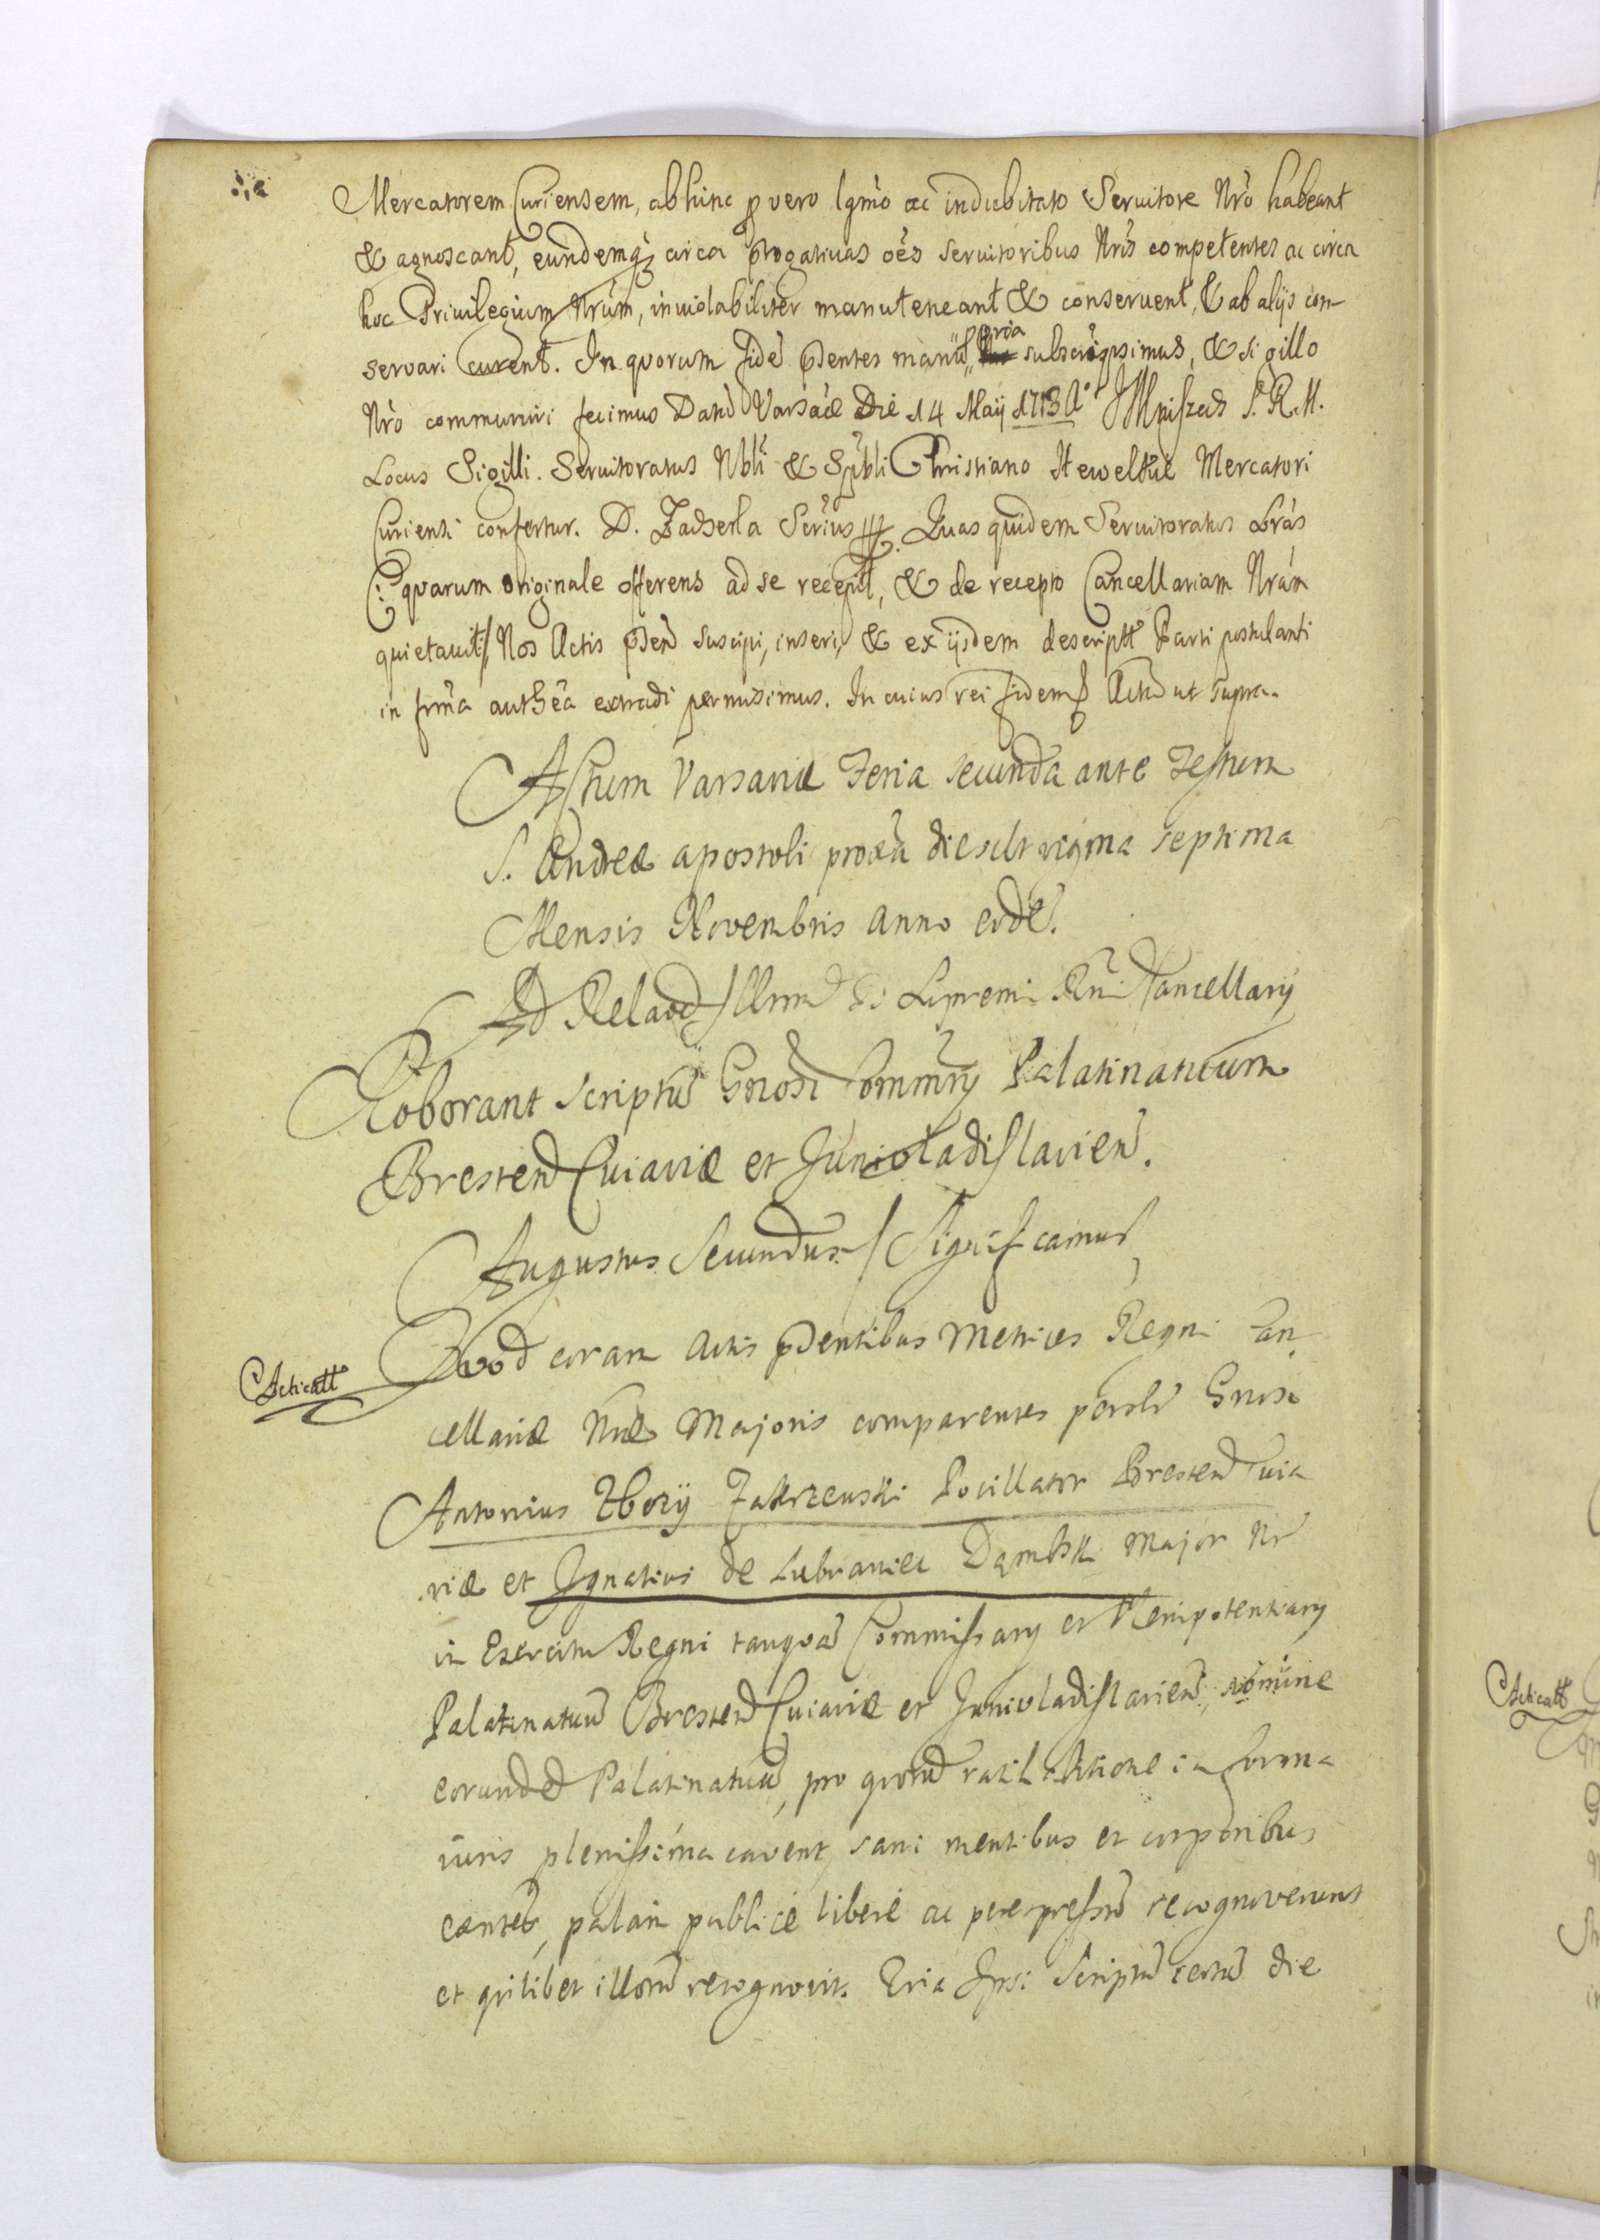 Mercatorem Curiensem, abhinc p vero lgmo ac indubitato Servitore Nro habeant
& agnoscant, eundemq circa progativas oes servitoribus Nris competentes ac circa
hoc Privilegium Nrum, inviolabiliter manuteneant & conservent, & ab alijs con-
servari curent. In quorum fide pdentes manu ppria subscripsimus, & sigillo
Nro communiri fecimus Dand Varsae Die 14 Maij 1713 Ao JMniszech S. R. M.
Locus Sigilli. Servitoratus Nbli & Spbli Christiano Heweltke Mercatori
Curiensi confertur. D. Zadserla Serius. Quas quidem Servitoratus Lras
(: quarum originale offerens ad se recepit, & de recepto Cancellariam Nram
quietavit:/ Nos Actis psen suscipi, inseri, & ex ijsdem descriptt Parti postulanti
in frma authea extradi permisimus. In cuius rei fidem Actu ut supra.
Actum Varsaviæ Feria secunda ante Festum
S. Andreæ apostoli proxa die sclt vigma septima
Mensis Novembris anno eode.
Ad Relaod Illrm Supremi Rni Cancellarij
Roborant scriptu Gnosi Commrij Palatinatuum
Bresten Cuiaviæ et Junivladislavien.
Augustus Secundus / Significamus
Acticatt
Quod coram Actis pdentibus Metrices Regni Can
cellariæ Nræ Majoris comparentes persolr Gnosi
Antonius Zakrzewski Pocillator Bresten Cuia
viæ et Ignatius de Lubraniec Dąmbski Major Nr
in Exercitu Regni tanqua Commissarij et Plenipotentiarij
Palatinatuu Bresten Cuiaviæ et Junivladislavien, nomine
eorunded Palatinatuu, pro quoru ratihabitione in forma
iuris plenissima cavent, sani mentibus et corporibus
exntes, palam publice libere ac perexpressu recognoverunt
et quilibet illoru recognovit. Scriptu certu die
Acticatt